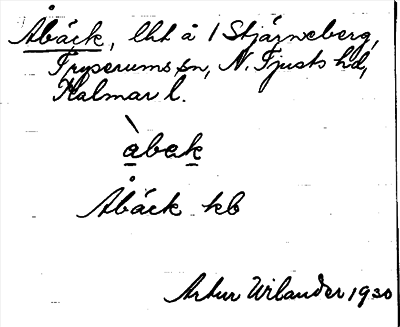 Åbäck, lht å 1 Stjärneberg,
Tryserums sn, N. Tjusts hd,
Kalmar l.
àbak
Åbäck kb
Artur Wilander 1930